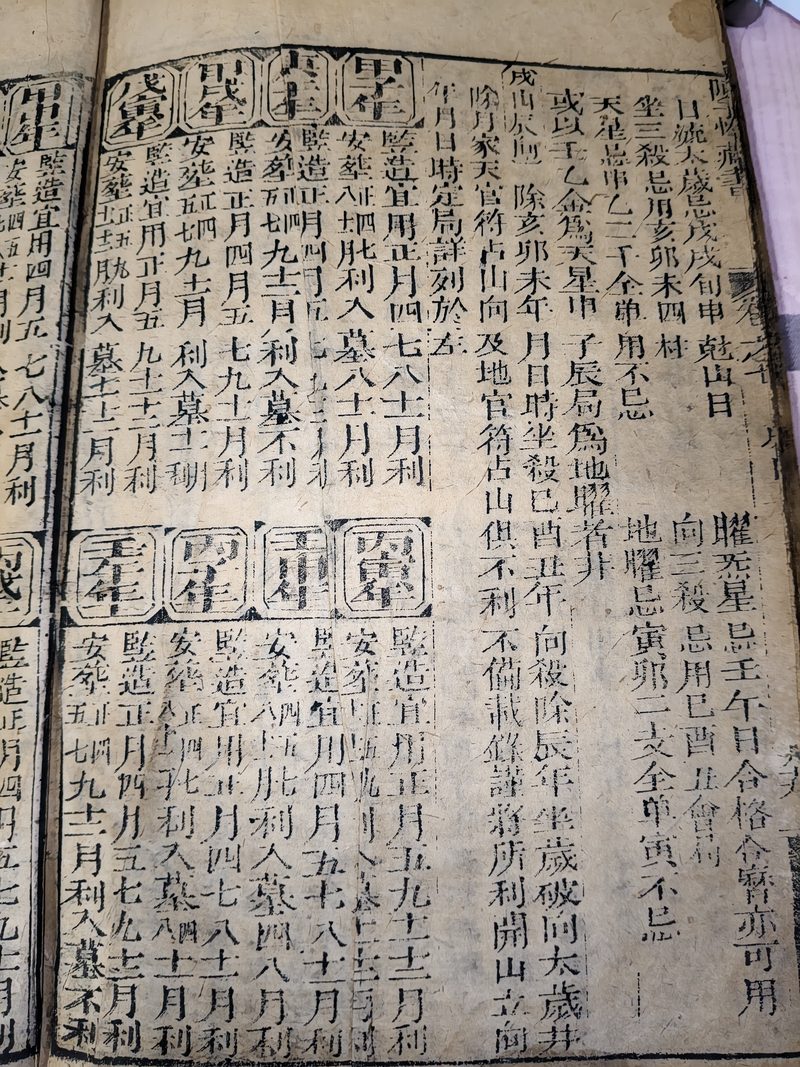 日流太歲忌戊戌旬申 乾山日 曜炁星忌壬午日合格合寶亦可用
坐三殺忌用亥卯未四林 向三殺忌用巳酉丑會局
天星忌申乙二干全單用不忌 地曜忌寅卯二支全單寅不忌
或以壬乙金為天星申子辰局為地曜者并
戌山辰向 除亥卯未年月日時坐殺巳酉丑年向殺除辰年坐歲破向太歲并
除月家天官符占山向及地官符占山俱不利不備載錄謹將所利開山立向
年月日時定局詳列於左
甲子年
豎造宜用正月四七八十一月利
安葬正四七八十十一月利入墓八十一月利
豎造正月四月五七九十二月利
安葬正四五七九十二月利入墓不利
甲戌年
豎造正月四月五七九十一月利
安葬正四五七九十二月利入墓十二月利
戊寅年
豎造宜用正月五九十一十二月利
安葬正五九十一十二月利入墓十一十二月利
甲申年
豎造宜用四月五七八十一月利
丙寅年
豎造宜用正月五九十一十二月利
壬申年
豎造宜用四月五七八十一月利
安葬四五七八十十一月利入墓四八月利
丙子年
豎造宜用正月四七八十一月利
安葬正四七八十十一月利入墓四八十一月利
壬午年
豎造正月四月五七九十二月利
安葬正四五七九十二月利入墓不利
豎造正月四月五七九十一月利